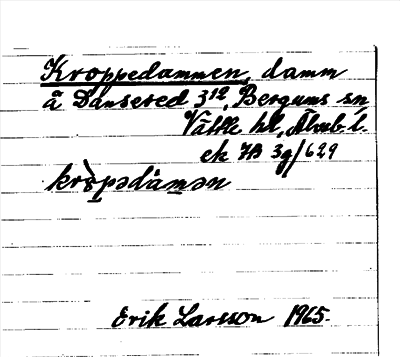 Kroppedammen, damm
å Dansered 3¹², Bergums sn
Vättle hd, Älvsb. l.
ek 7B 3g/629
kròpədàmən
Erik Larsson 1965.